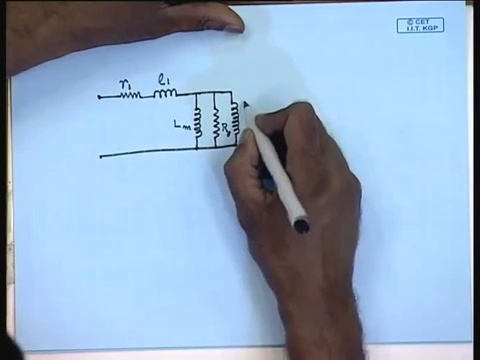 © CET
I.I.T. KGP
r₁ l₁
Lₘ